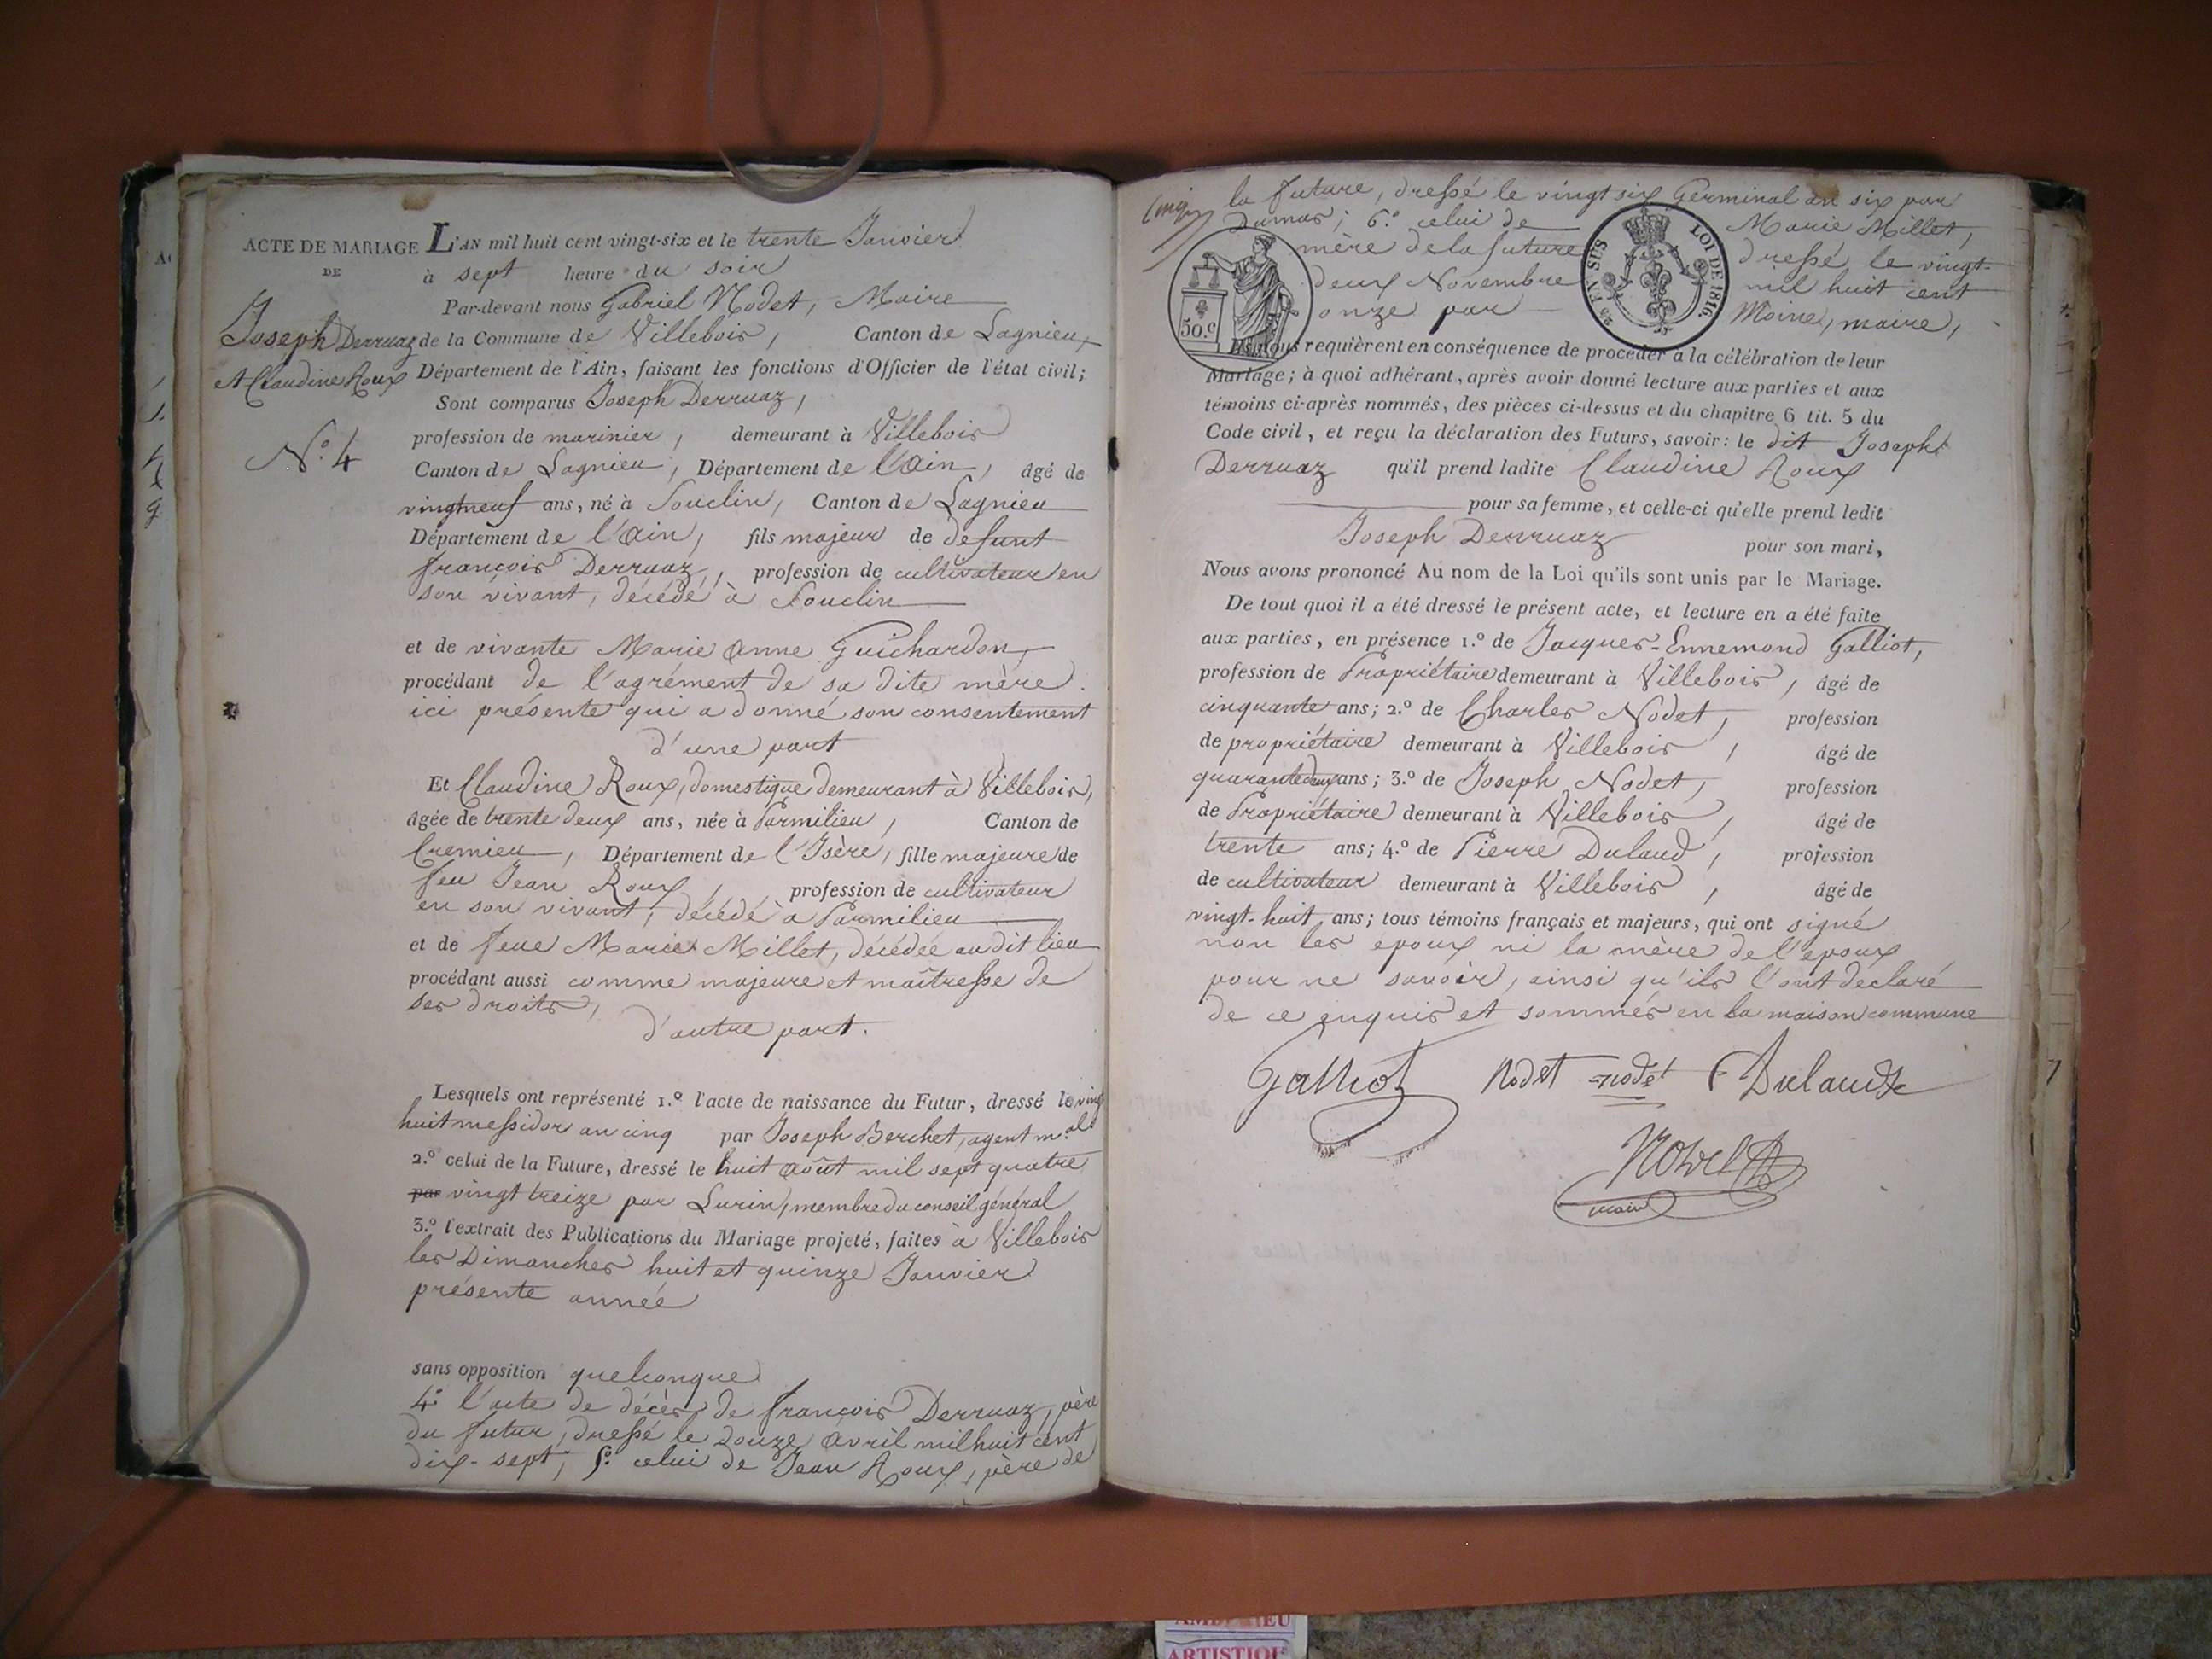 ACTE DE MARIAGE
DE
Joseph Derruaz
et Claudine Roux
N.º 4
L'AN mil huit cent vingt-six et le trente Janvier
à sept heure du soir
Par-devant nous Gabriel Nodet, Maire
de la Commune de Villebois, Canton de Lagnieu,
Département de l'Ain, faisant les fonctions d'Officier de l'état civil;
Sont comparus Joseph Derruaz,
profession de marinier, demeurant à Villebois
Canton de Lagnieu, Département de l'Ain, âgé de
vingtneuf ans, né à Souclin, Canton de Lagnieu
Département de l'Ain, fils majeur de defunt
françois Derruaz, profession de cultivateur en
son vivant, décédé à Souclin
et de vivante Marie Anne Guichardon,
procédant de l'agrément de sa dite mère.
ici présente qui a donné son consentement
d'une part
Et Claudine Roux, domestique demeurant à Villebois,
âgée de trente deux ans, née à Parmilieu, Canton de
Cremieu, Département de l'Isère, fille majeure de
feu Jean Roux, profession de cultivateur
en son vivant, décédé à Parmilieu
et de feue Marie Millet, décédée au dit lieu
procédant aussi comme majeure et maîtresse de
ses droits,
d'autre part.
Lesquels ont représenté 1.º l'acte de naissance du Futur, dressé le vingt
huit messidor an cinq par Joseph Berchet, agent m.al
2.º celui de la Future, dressé le huit août mil sept quatre
par vingt treize par Lurin, membre du conseil général
3.º l'extrait des Publications du Mariage projeté, faites à Villebois
les Dimanches huit et quinze Janvier
présente année
sans opposition quelconque
4.º l'acte de décès de françois Derruaz, père
du futur, dressé le douze avril mil huit cent
dix-sept; 5.º celui de Jean Roux, père de
la future, dressé le vingt six Germinal an six par
Dumas; 6.º celui de Marie Millet,
mère de la future dressé le vingt-
deux Novembre mil huit cent
onze par Moine, maire,
50.c
EN SUS
LOI DE 1816.
Ils nous requièrent en conséquence de procéder à la célébration de leur
Mariage; à quoi adhérant, après avoir donné lecture aux parties et aux
témoins ci-après nommés, des pièces ci-dessus et du chapitre 6 tit. 5 du
Code civil, et reçu la déclaration des Futurs, savoir: le dit Joseph
Derruaz qu'il prend ladite Claudine Roux
pour sa femme, et celle-ci qu'elle prend ledit
Joseph Derruaz pour son mari,
Nous avons prononcé Au nom de la Loi qu'ils sont unis par le Mariage.
De tout quoi il a été dressé le présent acte, et lecture en a été faite
aux parties, en présence 1.º de Jacques-Ennemond Galliot,
profession de Propriétaire demeurant à Villebois, âgé de
cinquante ans; 2.º de Charles Nodet, profession
de propriétaire demeurant à Villebois, âgé de
quarantedeux ans; 3.º de Joseph Nodet, profession
de Propriétaire demeurant à Villebois, âgé de
trente ans; 4.º de Pierre Dulaud, profession
de cultivateur demeurant à Villebois, âgé de
vingt-huit ans; tous témoins français et majeurs, qui ont signé
non les epoux ni la mère de l'epoux
pour ne savoir, ainsi qu'ils l'ont declaré
de ce enquis et sommés en la maison commune
Galliot Nodet nodet Dulaud
Nodet
maire
ARTISTIQUE